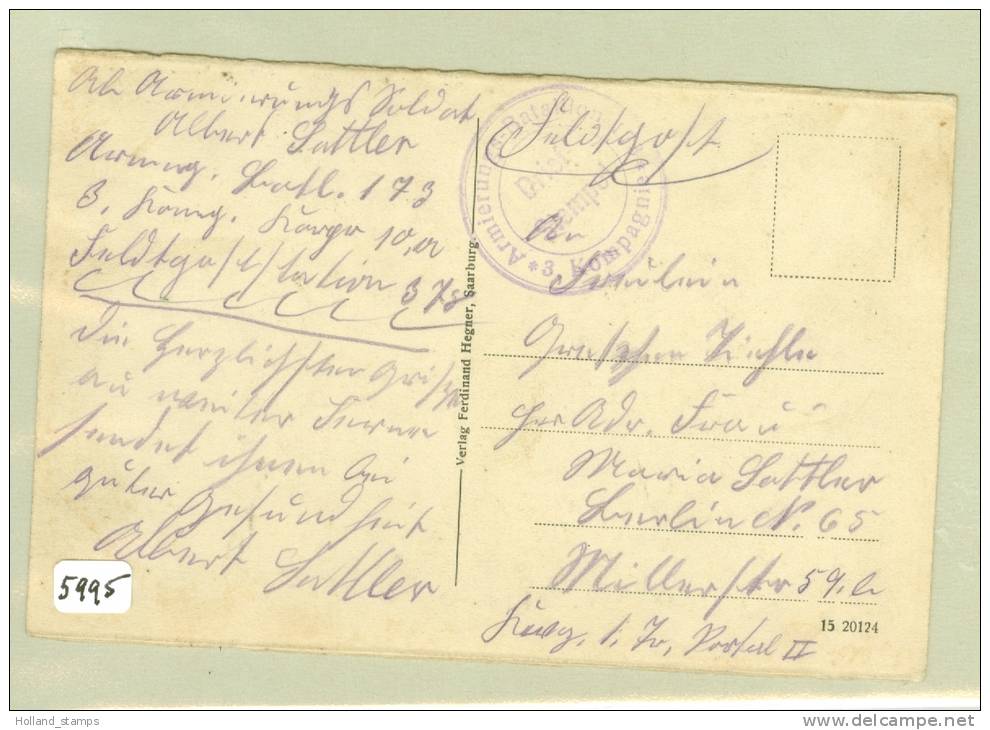 Abs Armierungs Soldat
Albert Sattler
Armug. Batl. 173
3. Komg.
Feldtgoststation 378
Die herzlichsten Grüße
aus weiter Ferne
sendet ihnen bei
guter Gesundheit
Albert Sattler
Feldtgost
Armierungs-Bataillon
* 3. Kompagnie *
Brief
stempel
An
Fräulein
Gretchen
per Adr. Frau
Maria Sattler
Berlin N. 65
Müllerstr 59.a
1. Tr. Portal II
Verlag Ferdinand Hegner, Saarburg.
15 20124
5995
Holland_stamps
http://www.delcampe.net